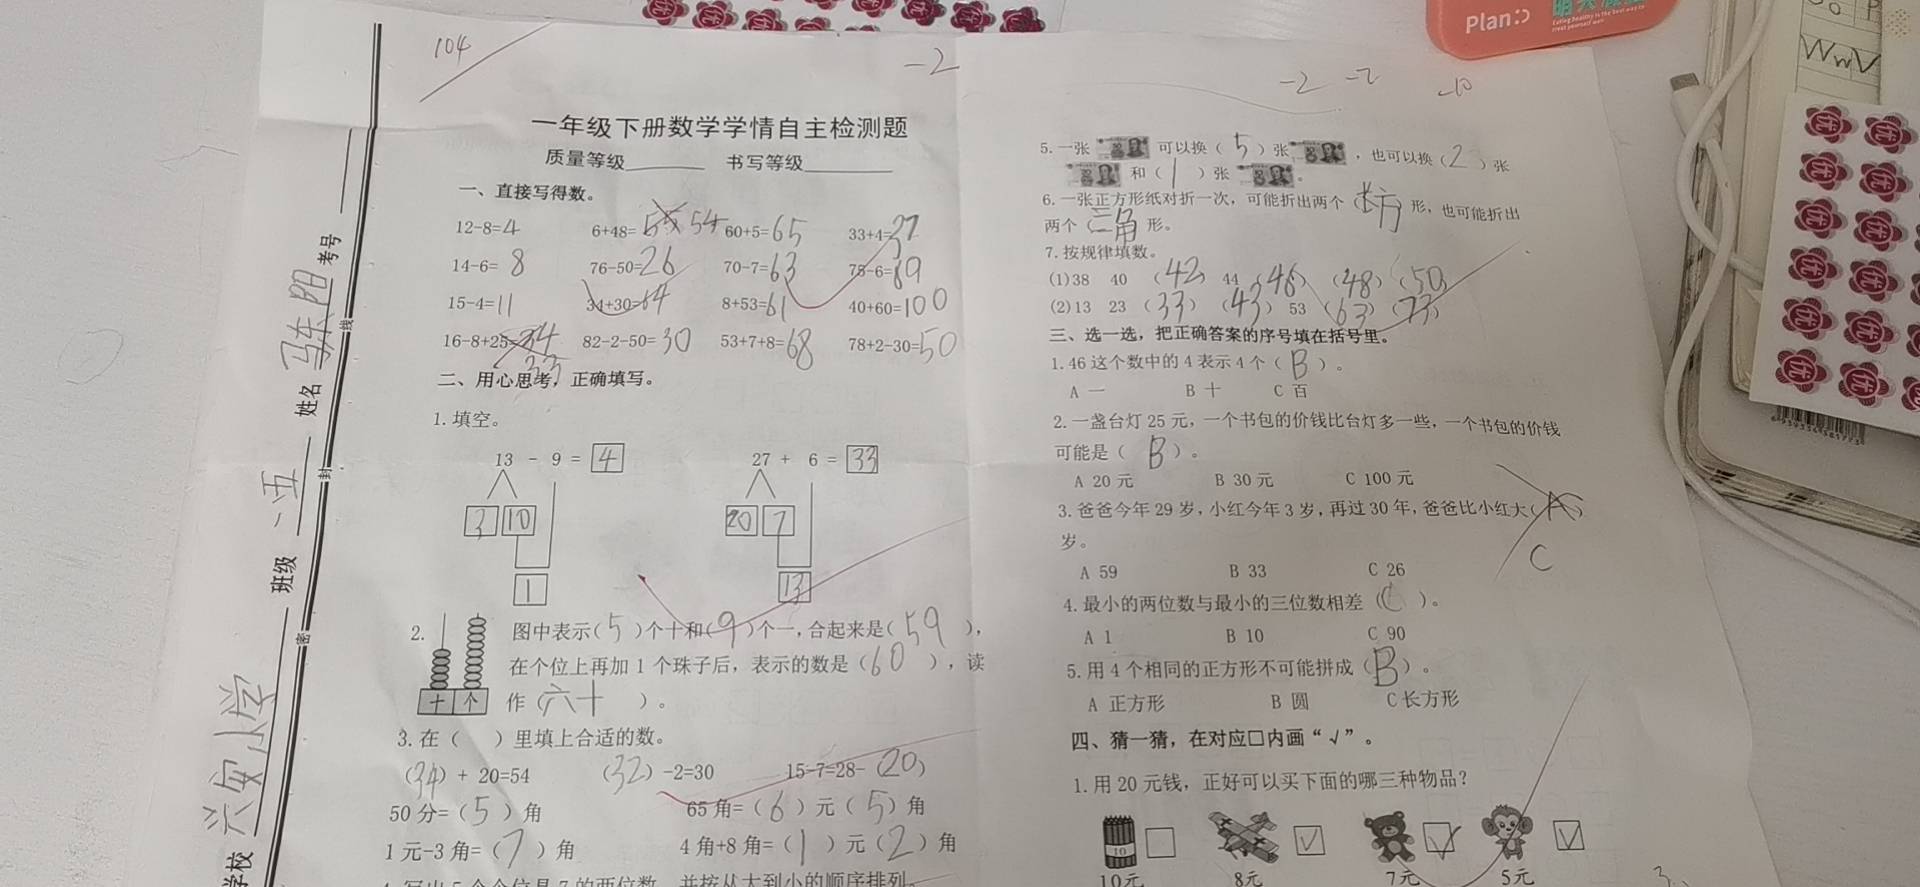 104
-2
-2 -2 -10
Plan
一年级下册数学学情自主检测题
质量等级 书写等级
一、直接写得数。
12-8=4 6+48= 54 60+5=65 33+4=37
14-6= 8 76-50=26 70-7=63 75-6=69
15-4=11 34+30=64 8+53=61 40+60=100
16-8+25=34 82-2-50=30 53+7+8=68 78+2-30=50
33
二、用心思考，正确填写。
1.填空。
13 - 9 = 4 27 + 6 = 33
3 10 20 7
1 13
2. 图中表示(5)个十和(9)个一,合起来是(59),
在个位上再加 1 个珠子后，表示的数是（60），读
十 个 作（六十）。
3.在（ ）里填上合适的数。
(34) + 20=54 (32) -2=30 15-7=28-(20)
50 分=（5）角 65 角=（6）元（5）角
1 元-3 角=（7）角 4 角+8 角=（1）元（2）角
4.写出 5 个个位是 7 的两位数，并按从大到小的顺序排列。
学校 六安小学 班级 一、五 姓名 马东阳 考号
密 封 线
5.一张 可以换（5）张 ，也可以换（2）张
和（1）张 。
6.一张正方形纸对折一次，可能折出两个（长方）形，也可能折出
两个（三角）形。
7.按规律填数。
(1)38 40 (42) 44 (46) (48) (50)
(2)13 23 (33) (43) 53 (63) (73)
三、选一选，把正确答案的序号填在括号里。
1.46 这个数中的 4 表示 4 个（B）。
A 一 B 十 C 百
2.一盏台灯 25 元，一个书包的价钱比台灯多一些，一个书包的价钱
可能是（B）。
A 20 元 B 30 元 C 100 元
3.爸爸今年 29 岁,小红今年 3 岁,再过 30 年,爸爸比小红大(A)
岁。 C
A 59 B 33 C 26
4.最小的两位数与最小的三位数相差（C）。
A 1 B 10 C 90
5.用 4 个相同的正方形不可能拼成（B）。
A 正方形 B 圆 C 长方形
四、猜一猜，在对应□内画“√”。
1.用 20 元钱，正好可以买下面的哪三种物品？
10
10元 8元 7元 5元
优